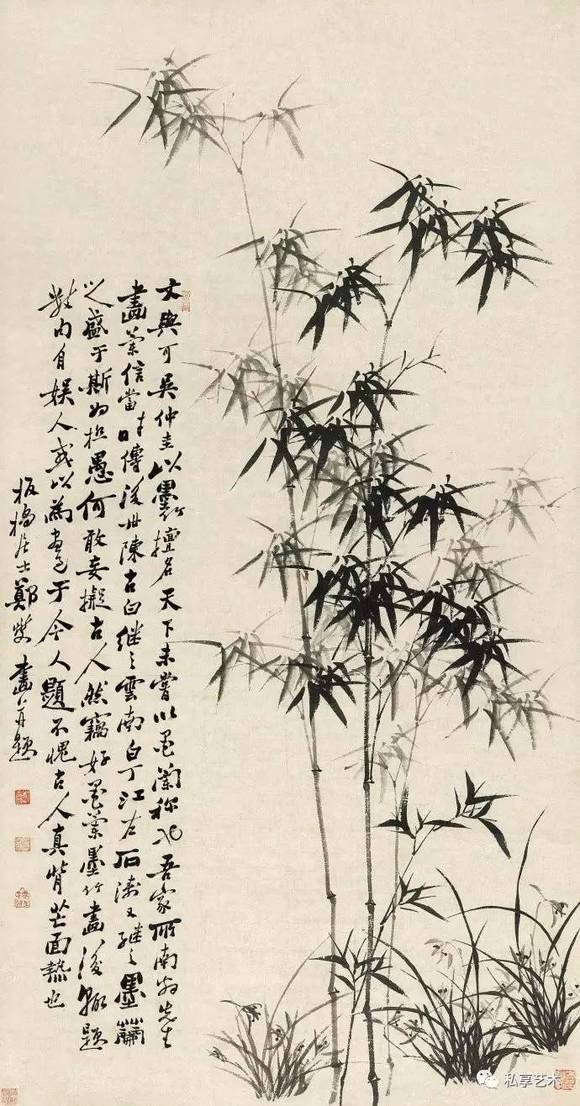 文與可吳仲圭以墨竹擅名天下未嘗以墨蘭稱也吾家所南翁先生
畫蘭信當時傳後世陳古白繼之雲南白丁江左石濤又繼之墨蘭
之盛于斯為極愚何敢妄擬古人然竊好墨蘭墨竹畫後輒題
數句自娛人或以為畫 于今人題不愧古人真背芒面熱也
板橋居士鄭燮畫并題
私享艺术